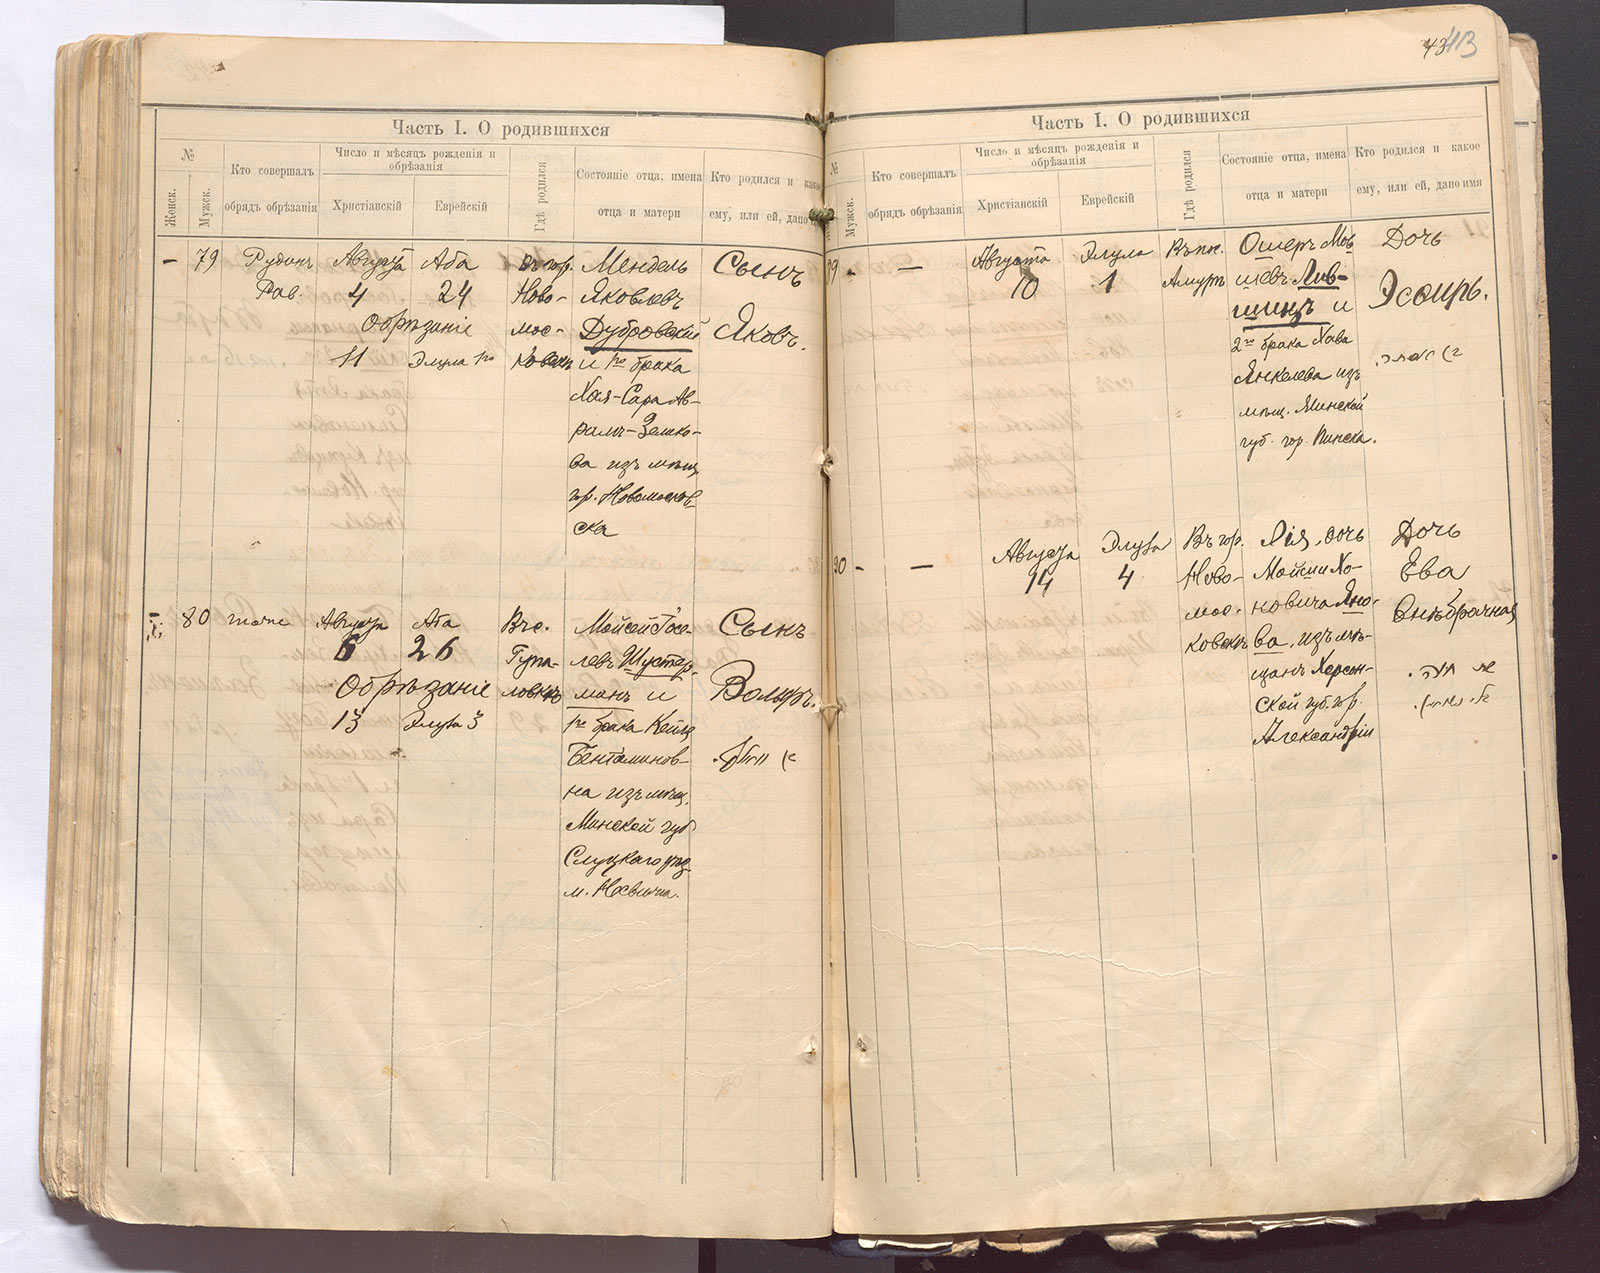 43 413
Часть I. О родившихся
№
Женск.
Мужск.
Кто совершалъ
обрядъ обрѣзанія
Число и мѣсяцъ рожденія и
обрѣзанія
Христіанскій
Еврейскій
Гдѣ родился
Состояніе отца, имена
отца и матери
Кто родился и какое
ему, или ей, дано
– 79
Рудинъ
Рав.
Августа
4
Аба
24
Обрѣзаніе
11
Элула 1го
въ гор.
Ново-
мос-
ковскъ
Мендель
Яковлевъ
Дубровскій
и 1го брака
Хая-Сара Ав-
рамъ-Зелико-
ва изъ мѣщ.
гор. Новомосков-
ска
Сынъ
Яковъ.
80
тоже
Августа
6
Аба
26
Обрѣзаніе
13
Элула 3
Въ с.
Гупа-
ловкѣ
Мойсей Госе-
левъ Шустер-
манъ и
1го брака Кейля
Бентаминов-
на изъ мѣщ.
Минской губ
Слуцкаго уѣз.
Сынъ
Вольфъ.
Часть I. О родившихся
№
Мужск.
Кто совершалъ
обрядъ обрѣзанія
Число и мѣсяцъ рожденія и
обрѣзанія
Христіанскій
Еврейскій
Гдѣ родился
Состояніе отца, имена
отца и матери
Кто родился и какое
ему, или ей, дано имя
89 – –
Августа
10
Элула
1
Въ пп.
Амуръ
Ошеръ Мов-
шевъ Лив-
шицъ и
2го брака Хава
Янкелева изъ
мѣщ. Минской
губ. гор. Пинска.
Дочь
Эсѳирь.
90 – –
Августа
14
Элула
4
Въ гор.
Ново-
мос-
ковскъ
Лія, дочь
Мойши Хо-
новича Яно-
ва, изъ мѣ-
щанъ Херсон-
ской губ. гор.
Александріи
Дочь
Ева
Внѣбрачная